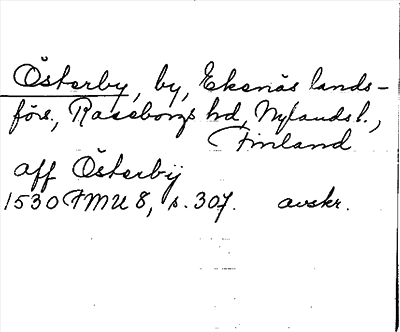 Österby, by, Ekenäs lands-
förs., Raseborgs hd, Nylands l.,
Finland
aff Österbÿ
1530 FMU 8, s. 307. avskr.